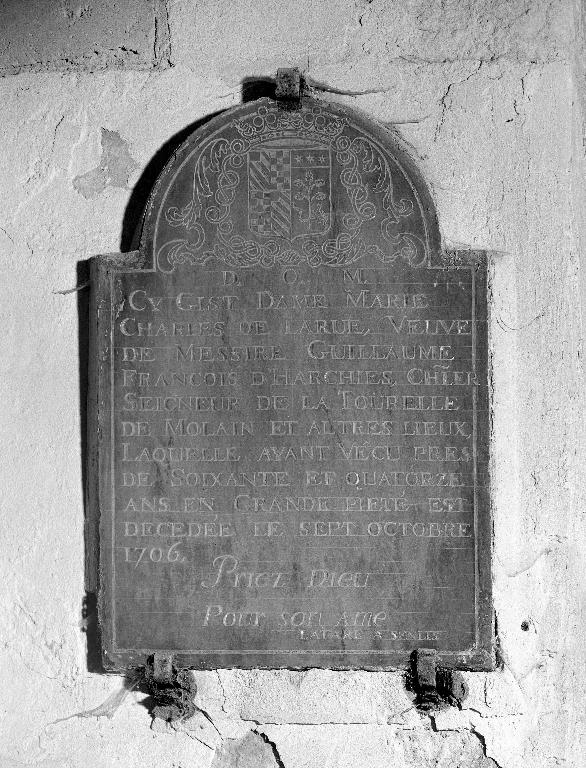 D. O. M.
CY GIST DAME MARIE
CHARLES DE LARUE, VEUVE
DE MESSIRE GUILLAUME
FRANCOIS D'HARCHIES, CHLER
SEIGNEUR DE LA TOURELLE
DE MOLAIN ET AUTRES LIEUX,
LAQUELLE AYANT VECU PRES
DE SOIXANTE ET QUATORZE
ANS EN GRANDE PIETÉ EST
DECEDEE LE SEPT OCTOBRE
1706.
Priez Dieu
Pour son ame
A SENLIS